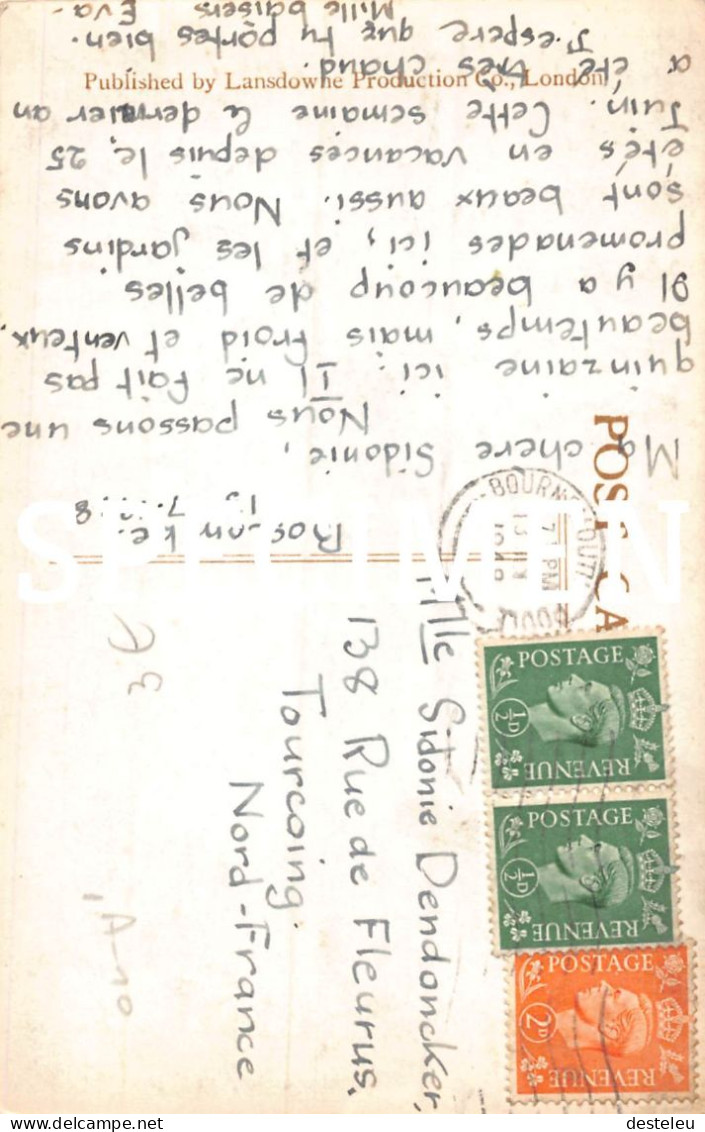 Ma chere Sidonie,
Nous passons une
quinzaine ici. Il ne fait pas
beau temps, mais froid et venteux.
Il y a beaucoup de belles
promenades ici, et les jardins
sont beaux aussi. Nous avons
étés en vacances depuis le 25
Juin. Cette semaine le dernier an
a été très chaud.
J'espere que tu portes bien.
Mille baisers
Eva
Published by Lansdowne Production Co., London
POST CA
Mlle Sidonie Dendoncker,
138 Rue de Fleurus,
Tourcoing.
Nord-France
3€
POSTAGE
½D
REVENUE
POSTAGE
½D
REVENUE
POSTAGE
2D
REVENUE
7 PM
SPECIMEN
www.delcampe.net
desteleu